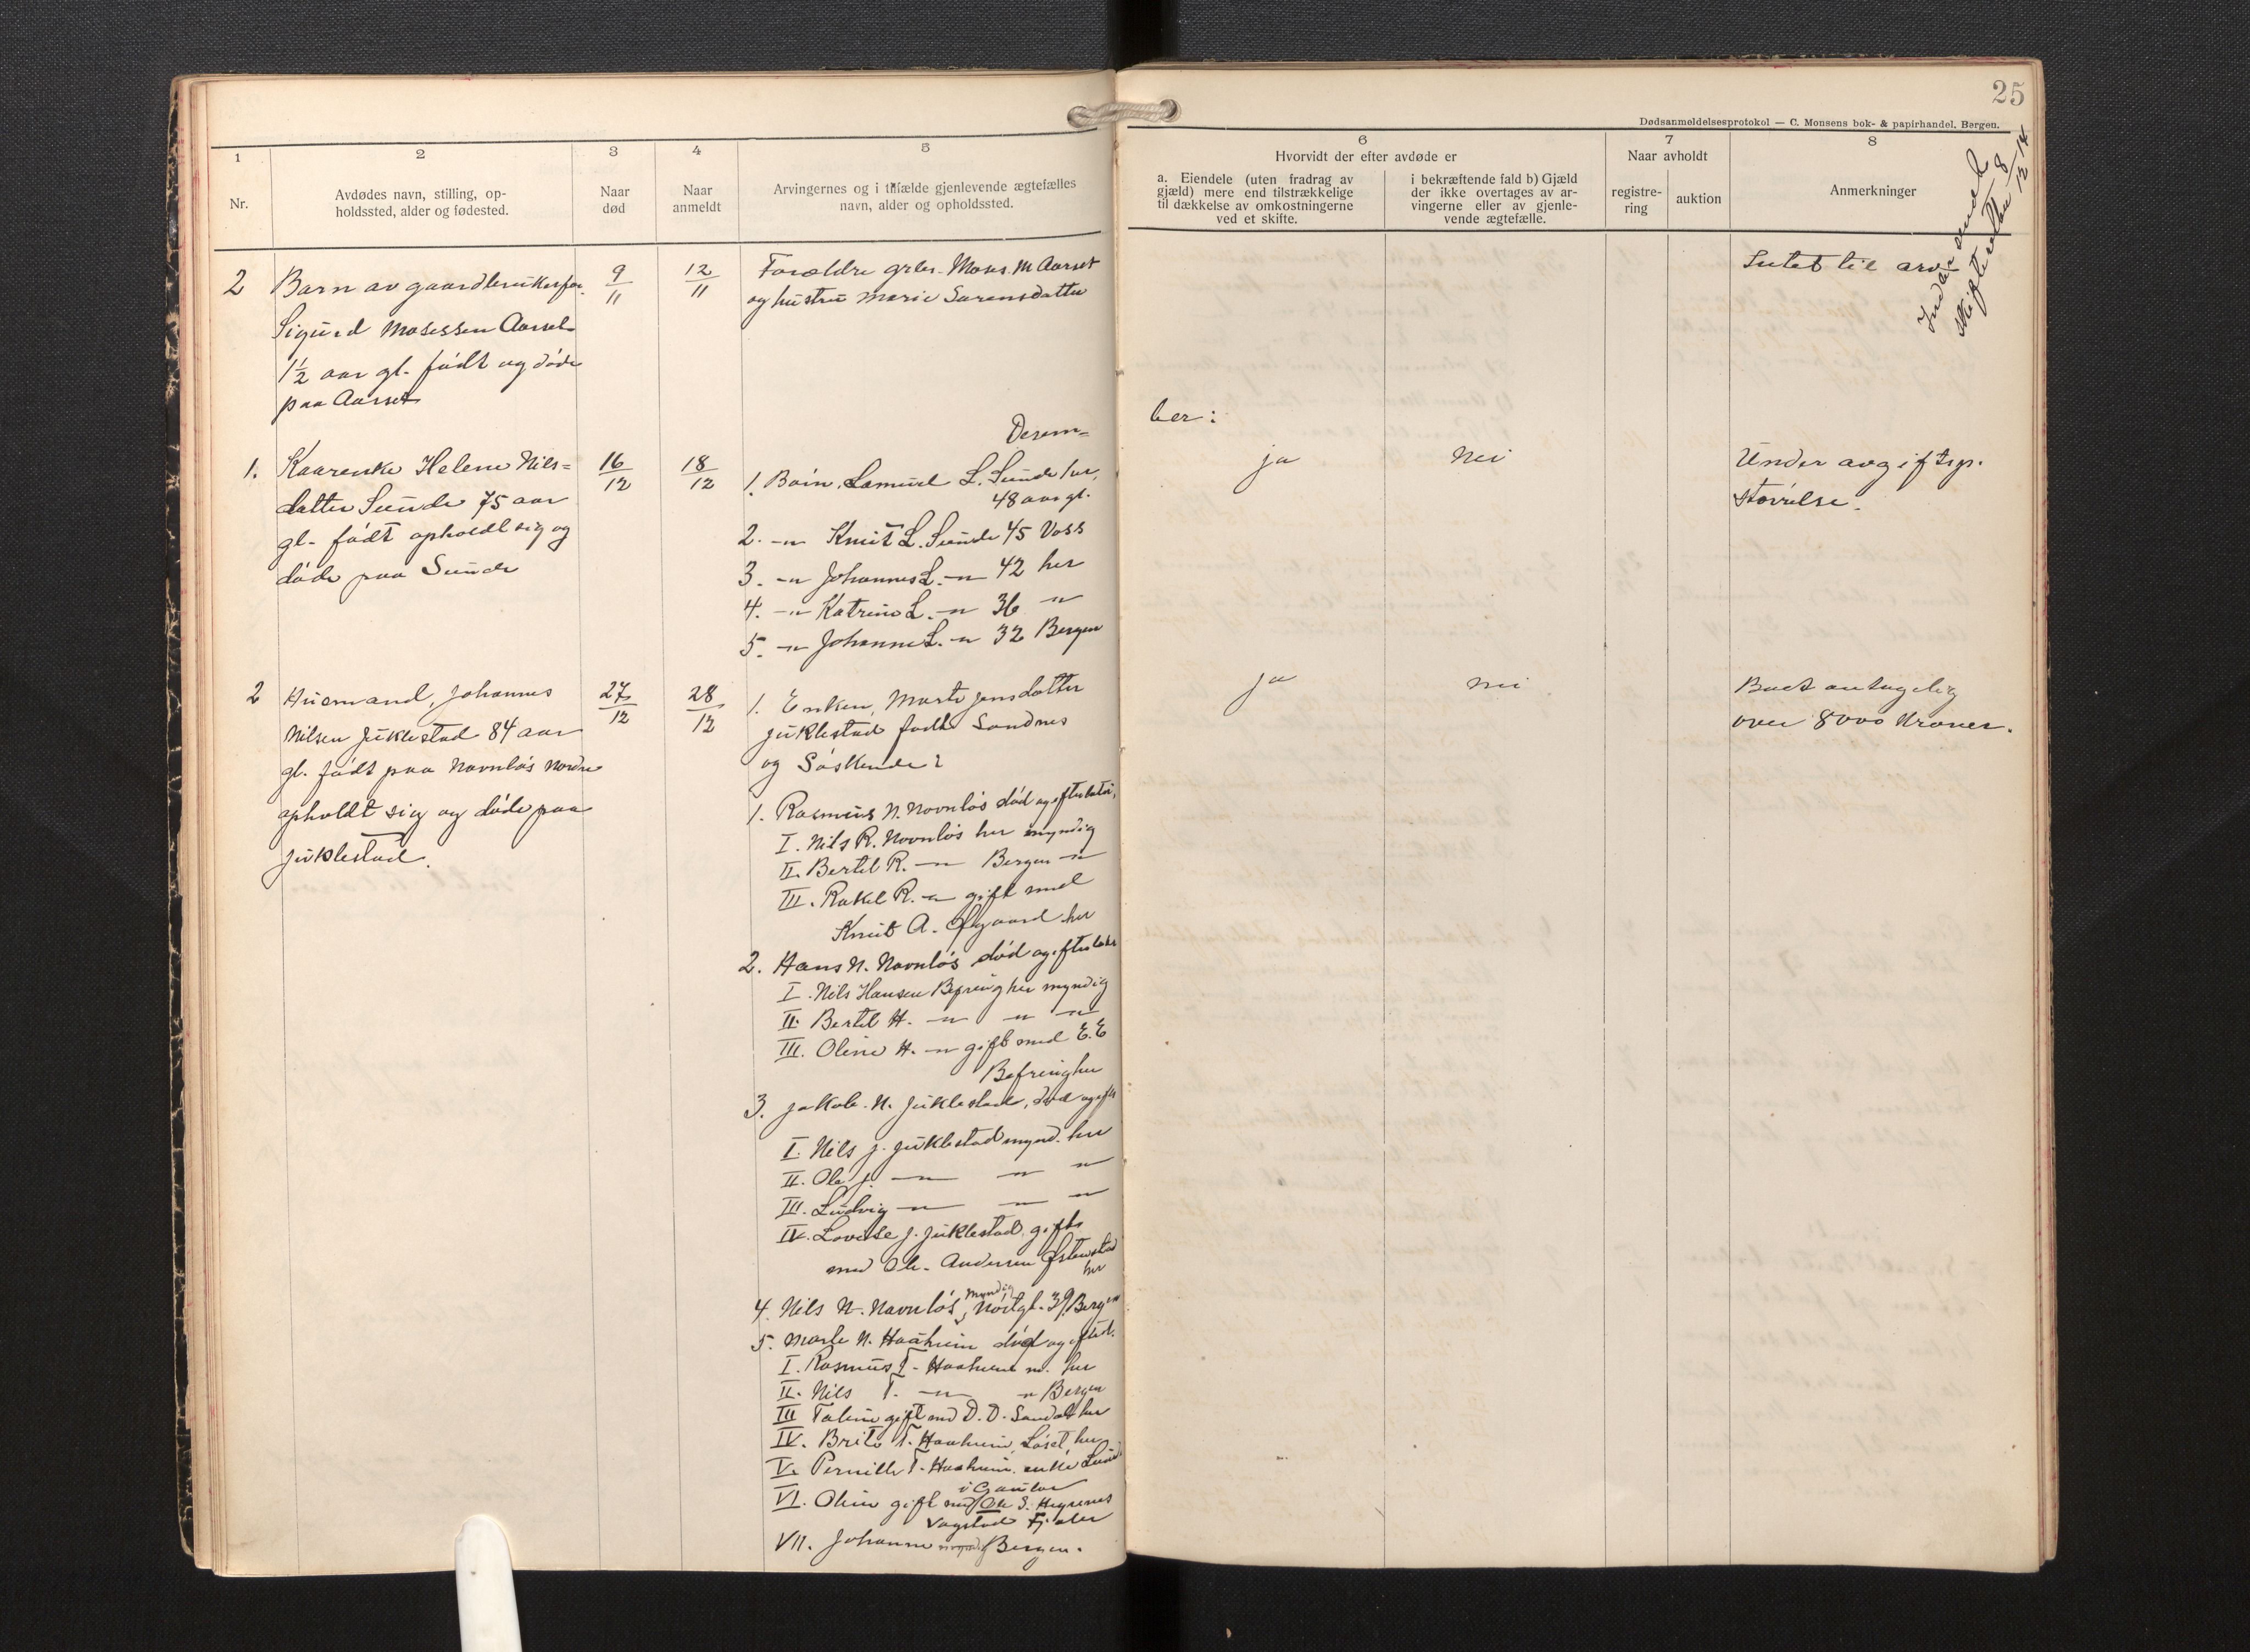 25
Dødsanmeldelsesprotokol — C. Monsens bok- & papirhandel, Bergen.
1
2
3
4
5
Nr.
Avdødes navn, stilling, op-
holdssted, alder og fødested.
Naar
død
Naar
anmeldt
Arvingernes og i tilfælde gjenlevende ægtefælles
navn, alder og opholdssted.
6
Hvorvidt der efter avdøde er
a. Eiendele (uten fradrag av
gjæld) mere end tilstrækkelige
til dækkelse av omkostningerne
ved et skifte.
i bekræftende fald b) Gjæld
der ikke overtages av ar-
vingerne eller av gjenle-
vende ægtefælle.
7
Naar avholdt
registre-
ring
auktion
8
Anmerkninger
skifteretten 8/12 14
2
Barn av gaardbruker
Sigurd Mosessen Aarset
1½ aar gl. født og døde
paa Aarset
9/11
12/11
Forældre grbr. Moses M Aarset
og hustru Marie Sørensdatter
Intet til arv
Desem=
ber:
1.
Kaarenke Helene Nils=
datter Sunde 75 aar
gl. født opholdt sig og
døde paa Sunde
16/12
18/12
1. Barn, Samuel L. Sunde her,
48 aar gl.
2. -"- Knut L. Sunde 45 Voss
3. -"- Johannes L. -"- 42 her
4. -"- Katrine L. -"- 36 -"-
5. -"- Johanne L. -"- 32 Bergen
ja
Nei
Under avgiftsp.
størrelse.
2
Husmand, Johannes
Nilsen Juklestad 84 aar
gl. født paa Navnløs Nordre
opholdt sig og døde paa
Juklestad.
27/12
28/12
1. Enken, Marte Jensdatter
Juklestad født Sandnes
og Søskende:
1. Rasmus N. Navnløs død og efterlater,
I. Nils R. Navnløs her myndig
II. Bertel R. -"- Bergen -"-
III. Rakel R. -"- gift med
Knut A. Øygaard her
2. Hans N. Navnløs død og efterlater
I. Nils Hansen Befring her myndig
II. Bertel H. -"- -"- -"-
III. Oline H. -"- gift med E. E
Befring her
3. Jakob N. Juklestad, død og efter
I. Nils J. Juklestad mynd. her
II. Ole J. -"- -"- -"-
III. Ludvig -"- -"- -"-
IV. Lovise J. Juklestad, gift
med Ole Andersen Østenstad
her
4. Nils N. Navnløs, myndig Bergen
5. Marte N. Haaheim død og efterl.
I. Rasmus T. Haaheim m. her
II. Nils T. -"- -"- Bergen
III Taline gift med D. D. Sandal her
IV. Brite T. Haaheim, Løset, her
V. Pernille T. Haaheim. enke Sunde
i Gaular
VI. Oline gift med Ole S. Hegrenes
Vagstad Fjaler
VII. Johanne myndig Bergen.
ja
nei
Boet antagelig
over 8000 Kroner.